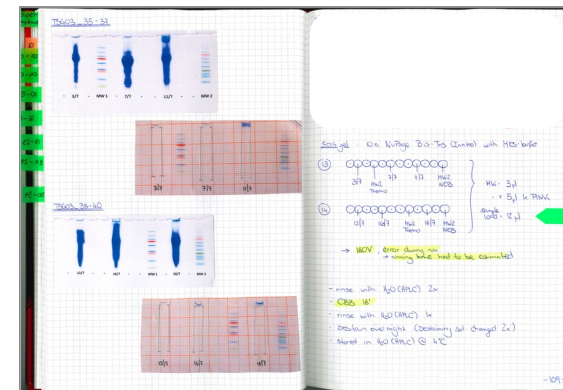 TSG03_35-37
- 3/7 - MW 1 - 7/7 - 11/7 - MW 2
3/7 7/7 11/7
TSG03_38-40
MW 1 MW 2
12/7 14/7 18/7
SDS gel - 10% NuPage Bis-Tris (Invitro) with MES-buffer
13
3/7 MW1 Thermo 7/7 11/7 MW2 NEB
14
12/7 14/7 MW1 Thermo 18/7 MW2 NEB
MW = 3 µl
sample load = 15 µl
→ 180V, error during run
→ running time had to be estimated
- rinse with H2O (HPLC) 2x
- CBB 18'
- rinse with H2O (HPLC) 1x
- Destain overnight (Destaining sol. changed 2x)
- stored in H2O (HPLC) @ 4°C
-109-